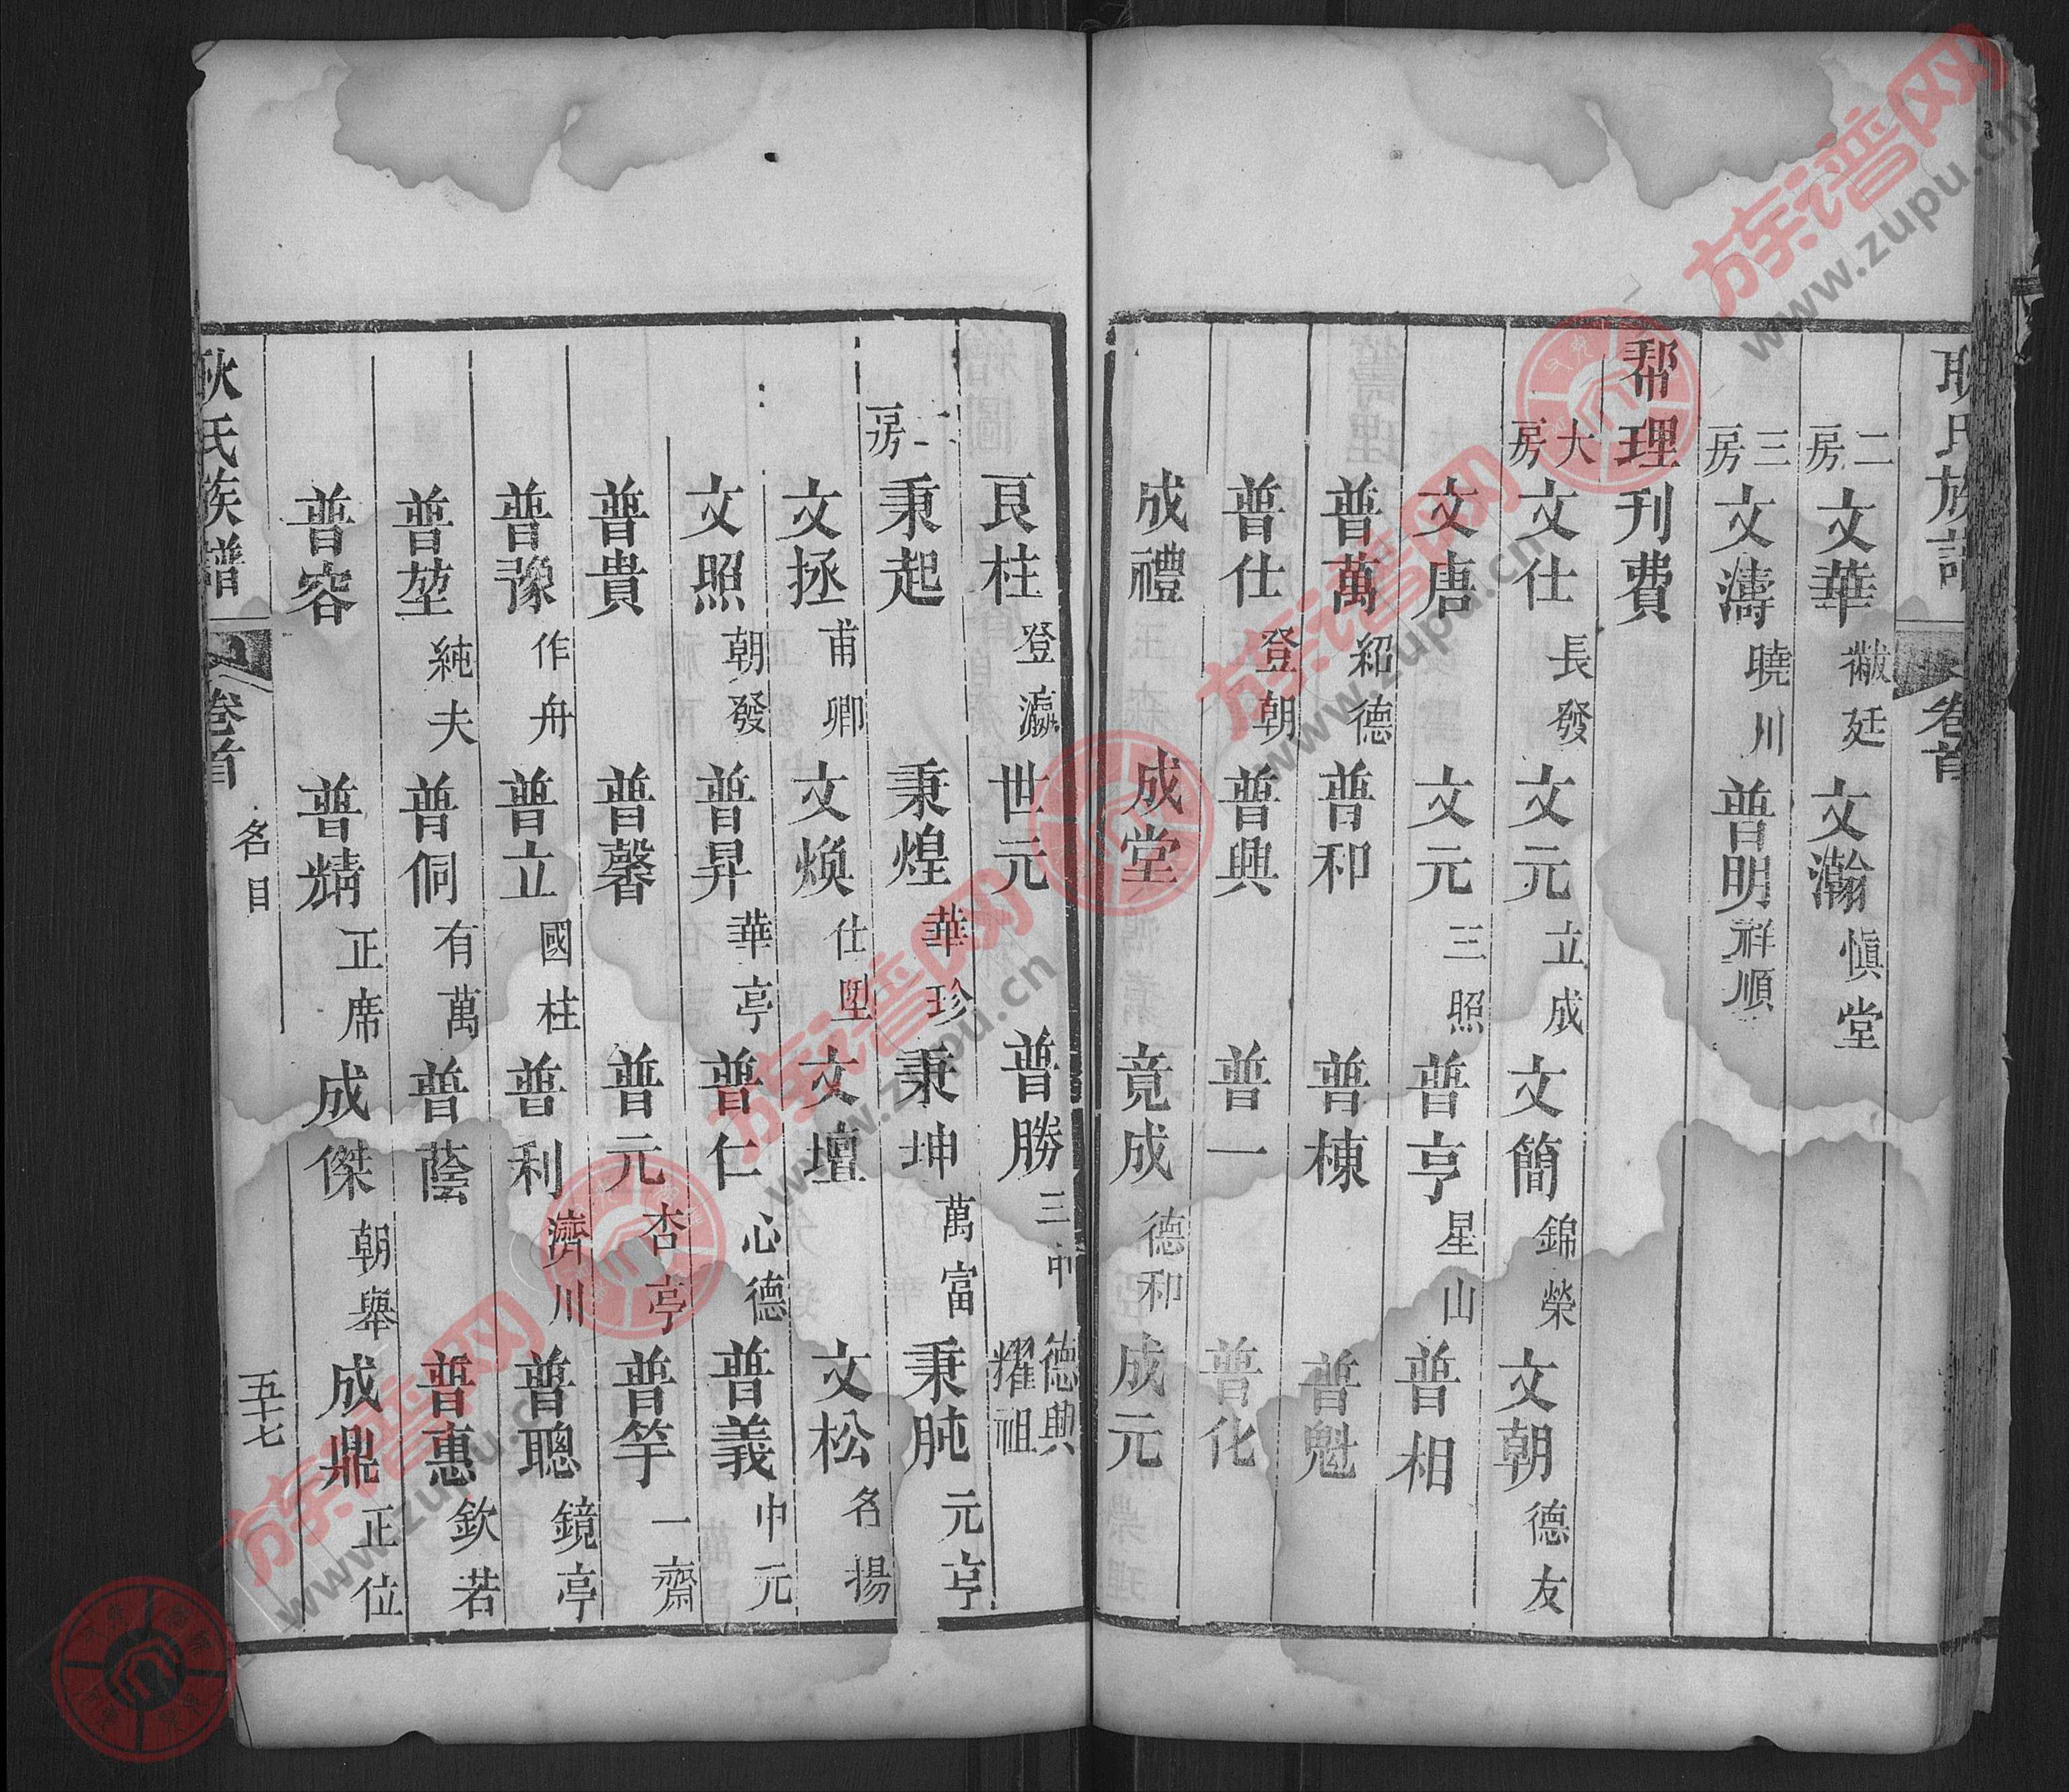 氏族譜 卷首
二房 文華 黻廷 文瀚 慎堂
三房 文濤 曉川 普明 祥順
帮理刊費
大房 文仕 長發 文元 立成 文簡 錦榮 文朝 德友
文唐 文元 三照 普亨 星山 普相
普萬 紹德 普和 普棟 普魁
普仕 登朝 普興 普一 普化
成禮 成堂 竟成 德和 成元
良柱 登瀛 世元 普勝 三 德興 耀祖
二房 秉起 秉煌 華珍 秉坤 萬富 秉肫 元亨
文拯 甫卿 文煥 仕型 文壇 文松 名揚
文照 朝發 普昇 華亭 普仁 心德 普義 中元
普貴 普馨 普元 杏亭 普竽 一齋
普豫 作舟 普立 國柱 普利 濟川 普聰 鏡亭
普堃 純夫 普侗 有萬 普蔭 普惠 欽若
普容 普精 正席 成傑 朝舉 成鼎 正位
氏族譜 卷首 名目 五十七
族谱网
www.zupu.cn
族谱网
www.zupu.cn
族谱网
www.zupu.cn
族谱网
www.zupu.cn